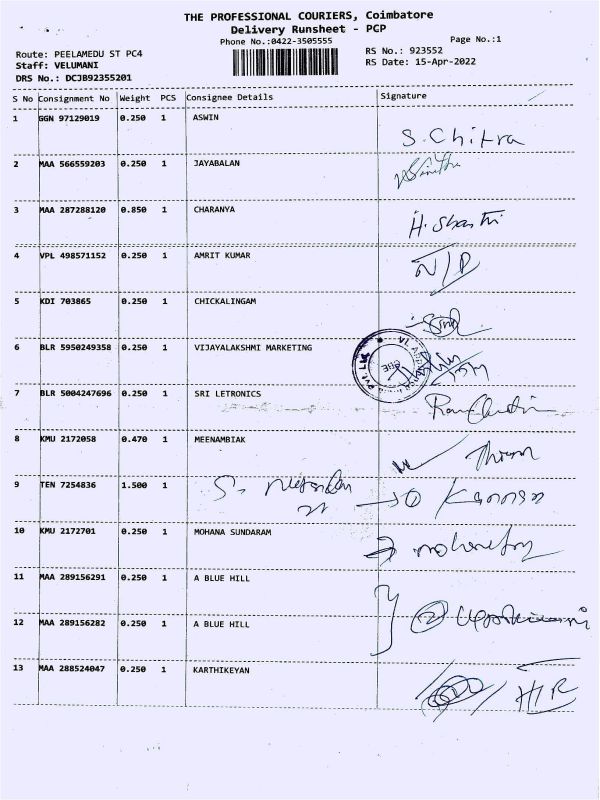 THE PROFESSIONAL COURIERS, Coimbatore
Delivery Runsheet - PCP
Phone No.:0422-3505555
Page No.:1
Route: PEELAMEDU ST PC4
RS No.: 923552
Staff: VELUMANI
RS Date: 15-Apr-2022
DRS No.: DCJB92355201
S No Consignment No Weight PCS Consignee Details Signature
1 GGN 97129019 0.250 1 ASWIN
S. Chitra
2 MAA 566559203 0.250 1 JAYABALAN
3 MAA 287288120 0.850 1 CHARANYA
H. Shanthi
4 VPL 498571152 0.250 1 AMRIT KUMAR
N/D
5 KDI 703865 0.250 1 CHICKALINGAM
6 BLR 5950249358 0.250 1 VIJAYALAKSHMI MARKETING
PVT. LTD
7 BLR 5004247696 0.250 1 SRI LETRONICS
8 KMU 2172058 0.470 1 MEENAMBIAK
9 TEN 7254836 1.500 1
10 KMU 2172701 0.250 1 MOHANA SUNDARAM
11 MAA 289156291 0.250 1 A BLUE HILL
12 MAA 289156282 0.250 1 A BLUE HILL
13 MAA 288524047 0.250 1 KARTHIKEYAN